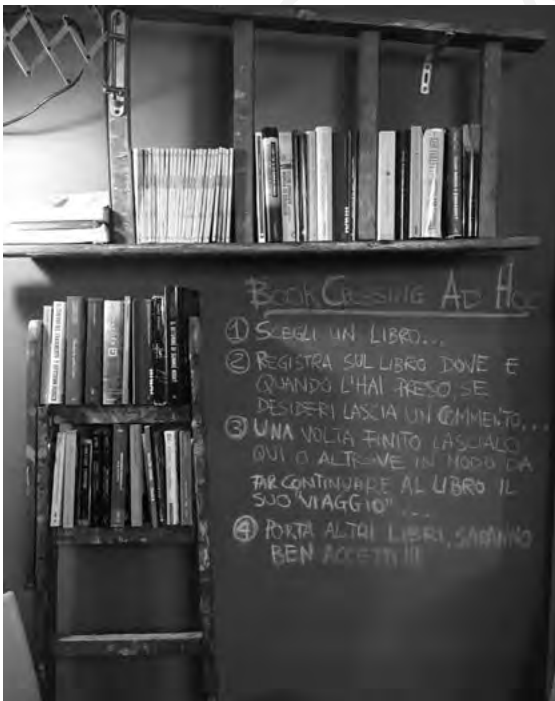 BOOK CROSSING AD HOC
① SCEGLI UN LIBRO...
② REGISTRA SUL LIBRO DOVE E
QUANDO L'HAI PRESO, SE
DESIDERI LASCIA UN COMMENTO...
③ UNA VOLTA FINITO LASCIALO
QUI O ALTROVE IN MODO DA
FAR CONTINUARE AL LIBRO IL
SUO "VIAGGIO"...
④ PORTA ALTRI LIBRI, SARANNO
BEN ACCETTI!!!